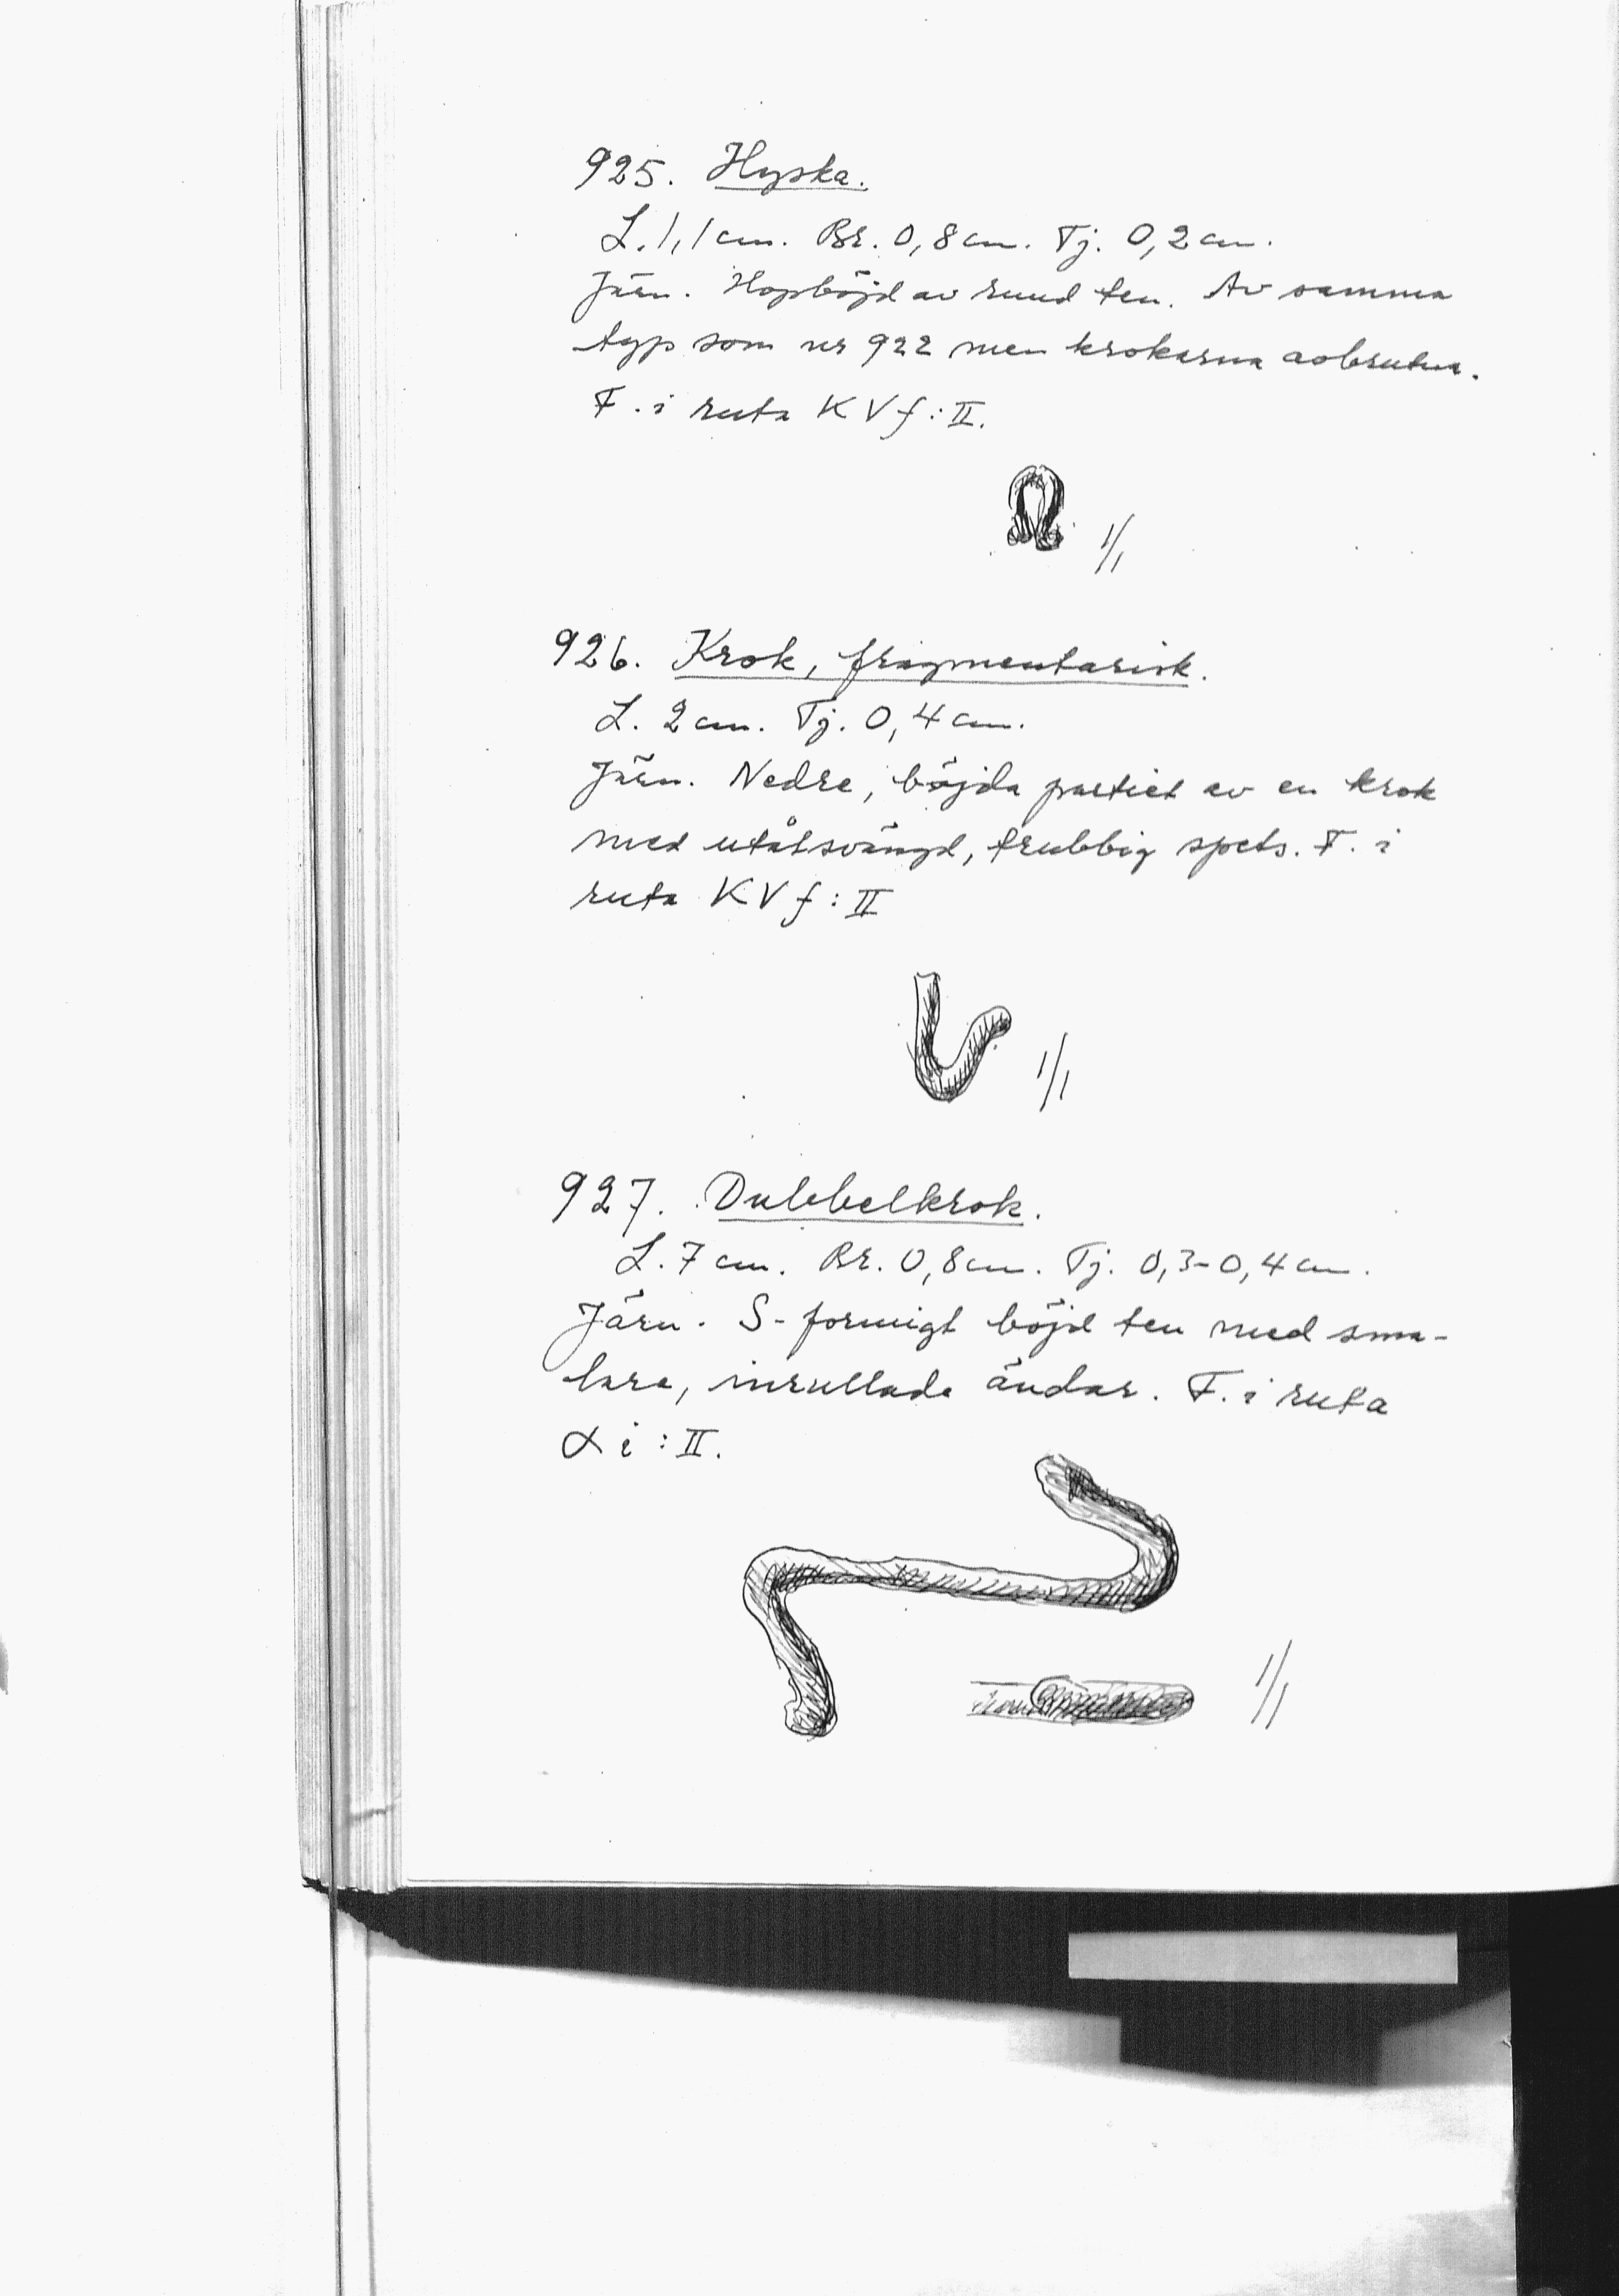 925. Hyska.
L. 1,1 cm. Br. 0,8 cm. Tj. 0,2 cm.
Järn. Hopböjd av rund ten. Av samma
typ som nr 922 men krokarna avbrutna.
F. i ruta KVf:II.
1/1
926. Krok, fragmentarisk.
L. 2 cm. Tj. 0,4 cm.
Järn. Nedre, böjda partiet av en krok
med utåtsvängd, trubbig spets. F. i
ruta KVf:II
1/1
927. Dubbelkrok.
L. 7 cm. Br. 0,8 cm. Tj. 0,3-0,4 cm.
Järn. S-formigt böjd ten med sma-
lare, inrullade ändar. F. i ruta
α i :II.
1/1